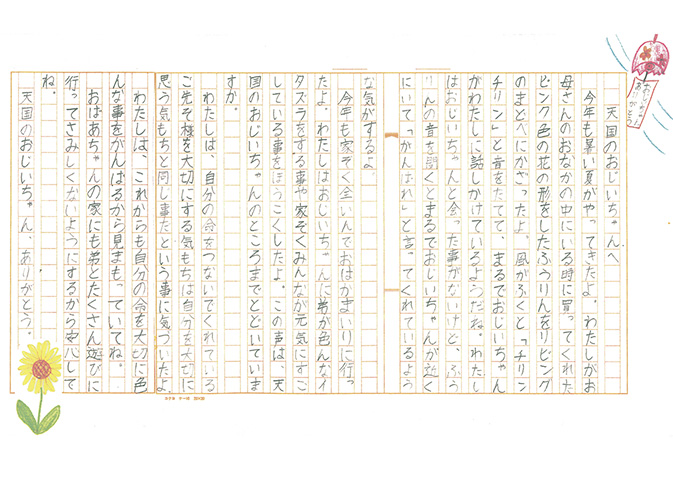 天国のおじいちゃんへ
今年も暑い夏がやってきたよ。わたしがお
母さんのおなかの中にいる時に買ってくれた
ピンク色の花の形をしたふうりんをリビング
のまどべにかざったよ。風がふくと「チリン
チリン」と音をたてて、まるでおじいちゃん
がわたしに話しかけているようだね。わたし
はおじいちゃんと会った事がないけど、ふう
りんの音を聞くとまるでおじいちゃんが近く
にいて「がんばれ」と言ってくれているよう
な気がするよ
今年も家ぞく全いんでおはかまいりに行っ
たよ。わたしはおじいちゃんに弟が色んなイ
タズラをする事や家ぞくみんなが元気にすご
している事をほうこくしたよ。この声は、天
国のおじいちゃんのところまでとどいていま
すか。
わたしは、自分の命をつないでくれている
ご先ぞ様を大切にする気もちは自分を大切に
思う気もちと同じ事だという事に気づいたよ。
わたしは、これからも自分の命を大切に色
んな事をがんばるから見まもっていてね。
おばあちゃんの家にも弟とたくさん遊びに
行ってさみしくないようにするから安心して
ね。
天国のおじいちゃん、ありがとう。